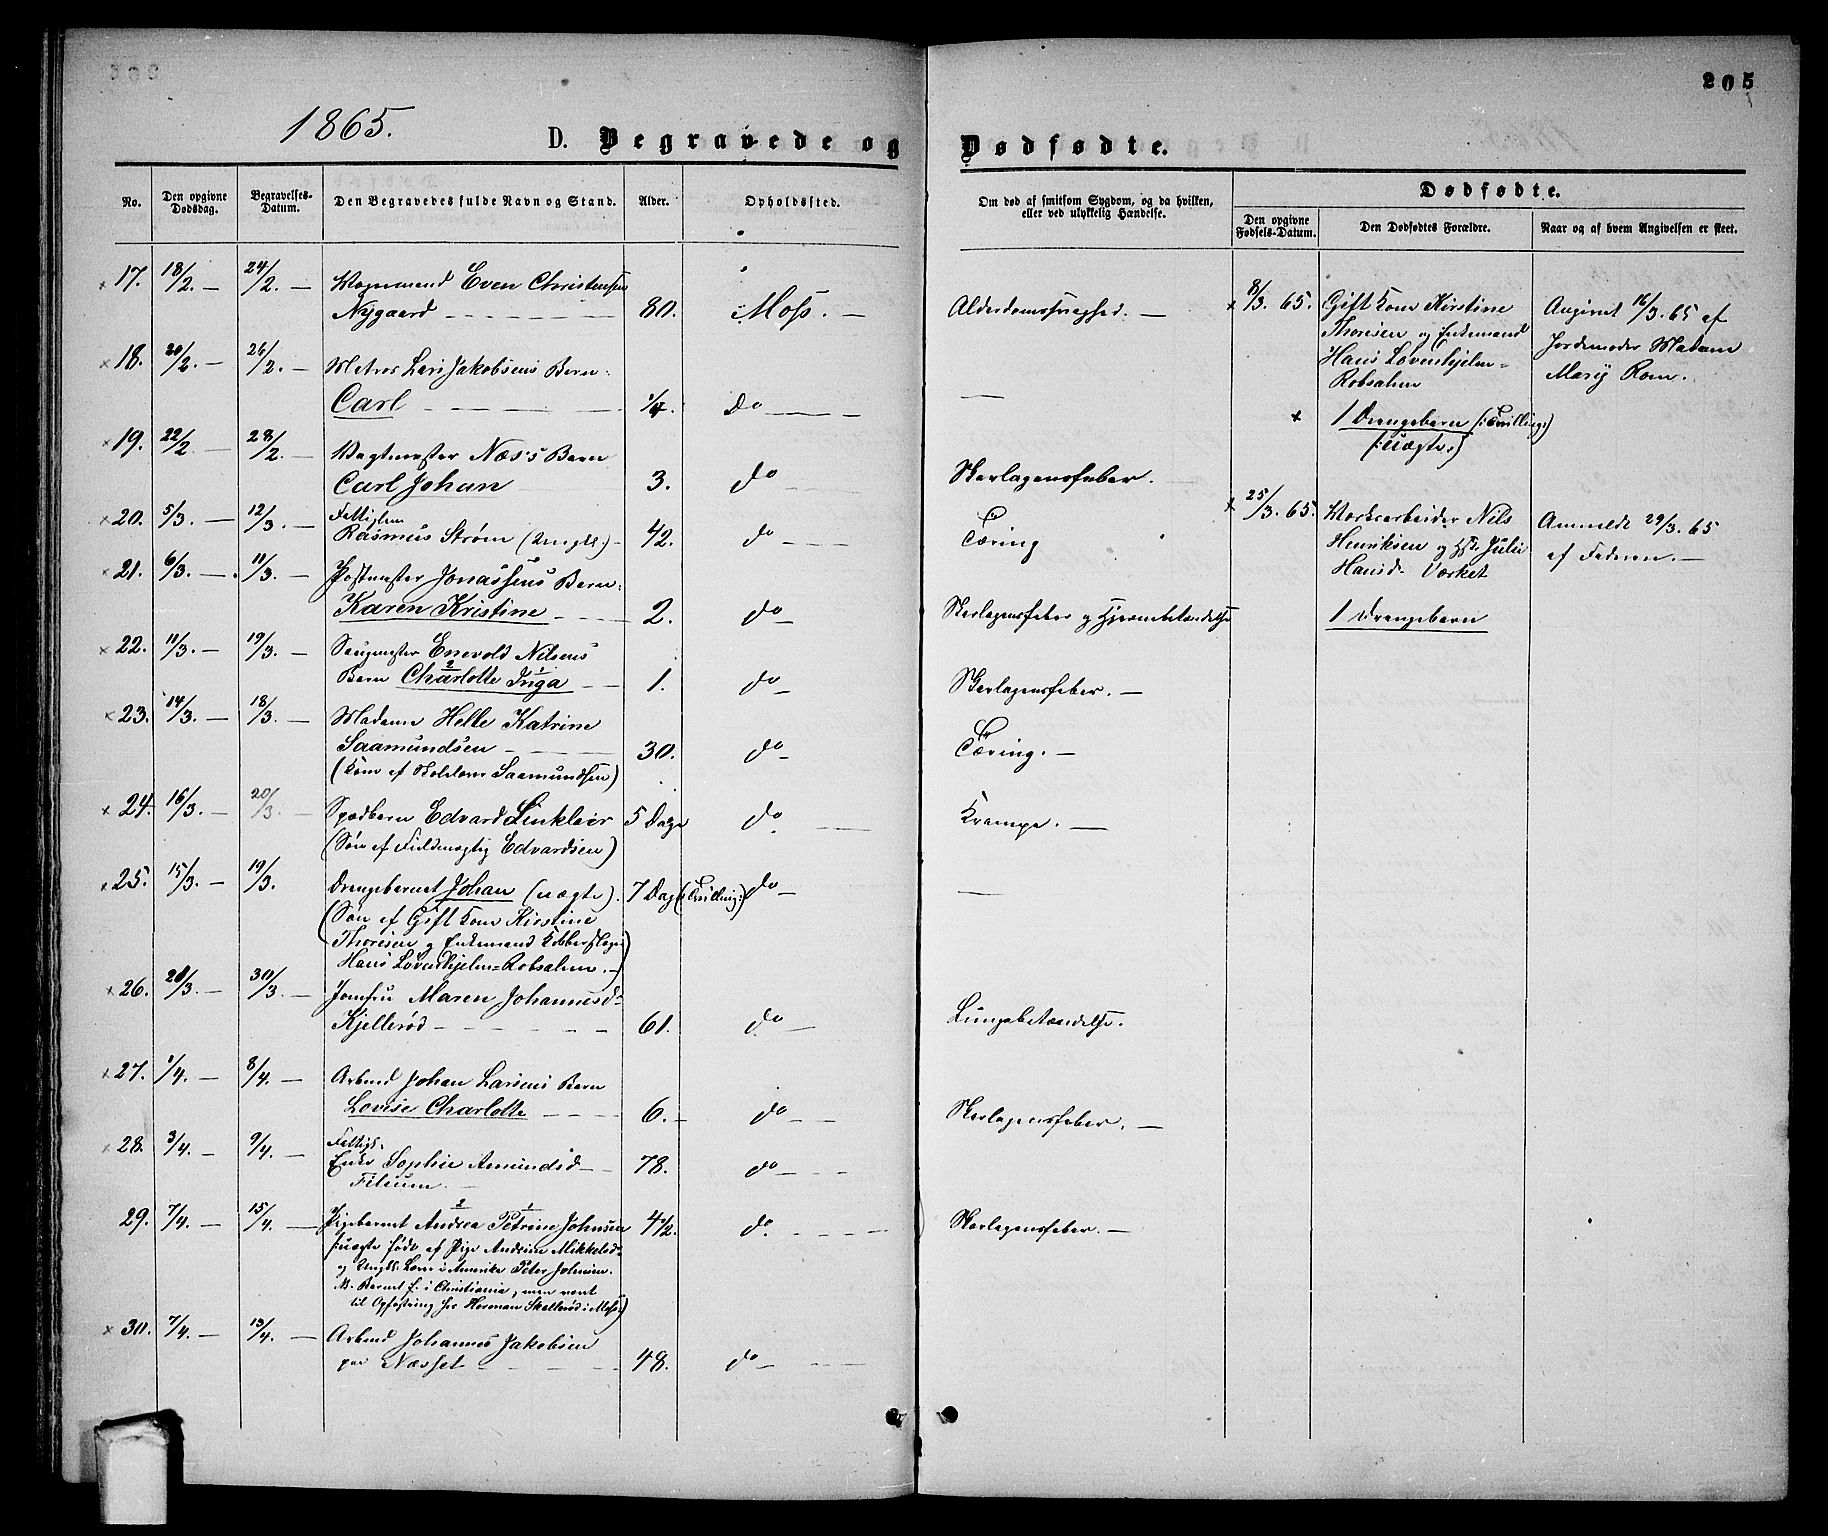 205
1865.
D. Begravede og Dødfødte.
No.
Den opgivne Dødsdag.
Begravelses-Datum.
Den Begravedes fulde Navn og Stand.
Alder.
Opholdssted.
Om død af smitsom Sygdom, og da hvilken, eller ved ulykkelig Hændelse.
Dødfødte.
Den opgivne Fødsels-Datum.
Den Dødfødtes Forældre.
Naar og af hvem Angivelsen er skeet.
17. 18/2. — 24/2. — Vognmand Even Christensen
Nygaard 80. Moss. — Alderdomssvaghed. —
18. 20/2. — 26/2. — Matros Lars Jakobsens Barn
Carl 1/4. do —
19. 22/2. — 28/2. — Vagtmester Næss's Barn
Carl Johan 3. do Skarlagensfeber.
20. 5/3. — 12/3. — Fattiglem
Rasmus Strøm (Ungk.) 42. do Tæring
21. 6/3. — 11/3. — Postmester Jonassens Barn
Karen Kristine 2. do Skarlagensfeber og Hjernebetændelse
22. 11/3. — 19/3. — Saugmester Enevold Nilsens
Barn Charlotte Inga 1. do Skarlagensfeber. —
23. 14/3. — 18/3. — Madame Helle Katrine
Saamundsen 30. do Tæring. —
(Kone af Saamundsen)
24. 16/3. — 20/3. — Spædbarn Edvard Sinklair 5 Dage do Krampe. —
(Søn af Fuldmægtig Edvardsen)
25. 15/3. — 19/3. Drengebarnet Johan (uægte). 7 Dage (Tvilling) do —
(Søn af Gift Kone Kirstine
Thoresen og Enkemand Kobberslager
Hans Løvenhjelm=Robsahm.)
26. 20/3. — 30/3. — Jomfru Maren Johannesd.
Kjellerød 61. do Lungebetændelse.
27. 1/4. — 8/4. — Arbmd Johan Larsens Barn
Lovise Charlotte 6. — do Skarlagensfeber. —
28. 3/4. — 9/4. — Fattigl.
Enke Sophie Amundsd
78. do
29. 7/4. — 15/4. — Pigebarnet Andrea Petrine Johnsen 4 1/2. do. Skarlagensfeber. —
(:uægte født af Pige Andrine Mikkelsd.
og Ungk. i Amerika Peter Johnsen.
NB. Barnet f. i Christiania, men vært
til Opfostring hos Herman Skallerød i Moss:)
30. 7/4. — 13/4. — Arbmd Johannes Jakobsen
paa Næsset 48. do
8/3. 65. Gift Kone Kirstine
Thoresen og Enkemand
Hans Løvenhjelm=
Robsahm
1 Drengebarn (:Tvilling:)
(:uægte:)
Angivet 16/3. 65 af
Jordemoder Madam
Marie Rom.
25/3. 65. Værksarbeider Nils
Henriksen og Hst. Julie
Hansd. Værket
1 Drengebarn
Anmeldt 29/3. 65
af Faderen. —